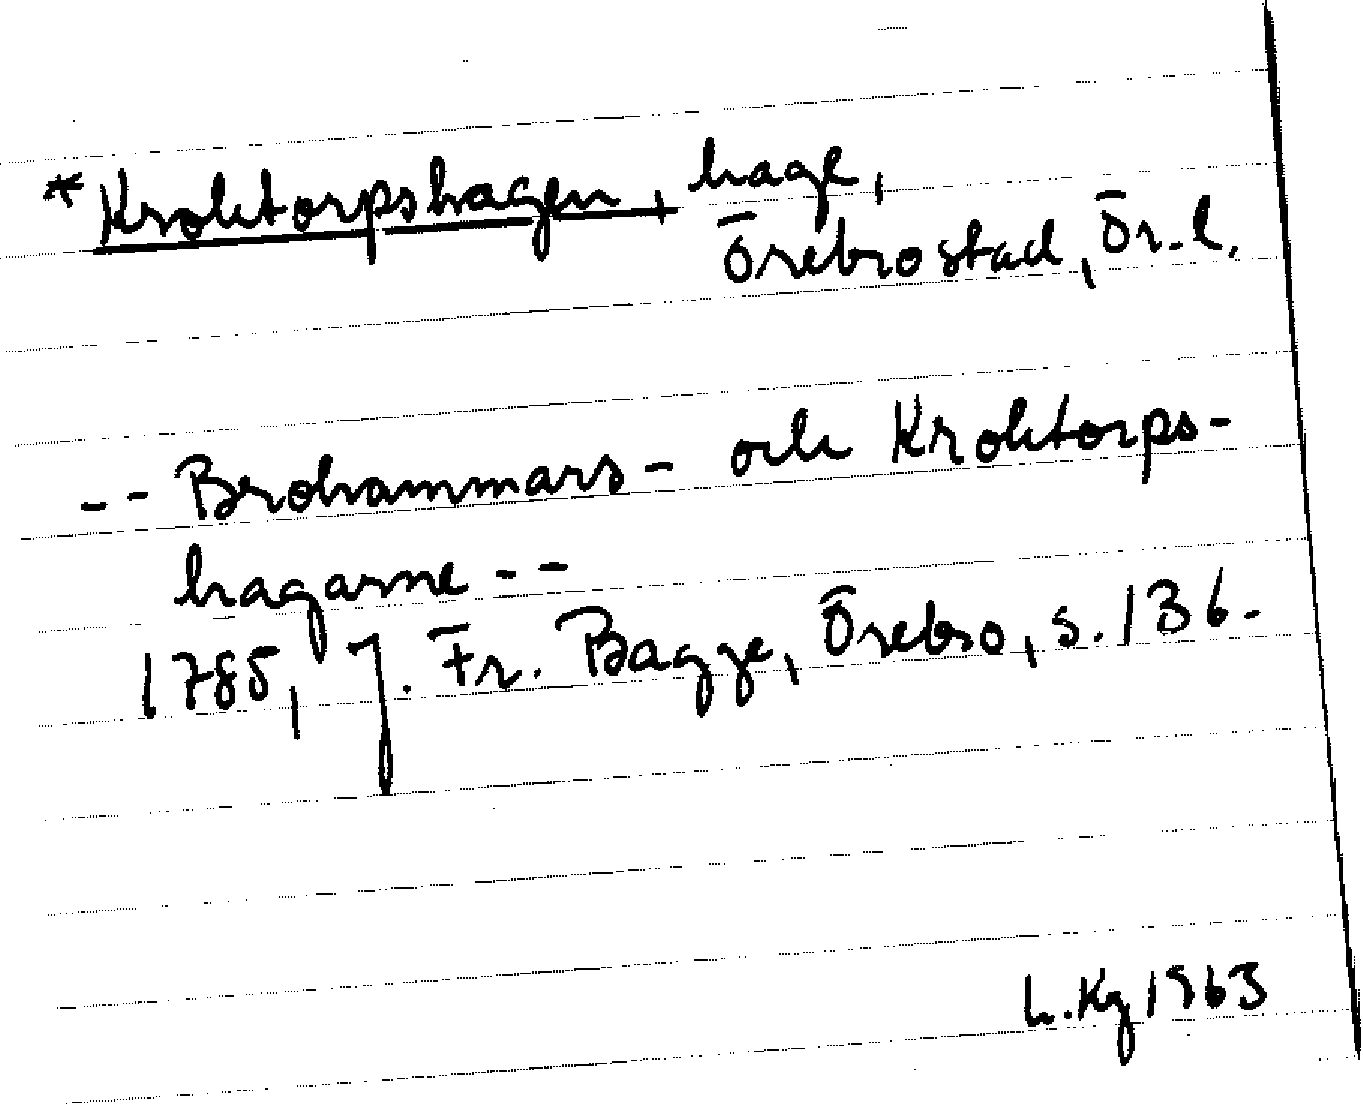 *Kroktorpshagen, hage,
Örebro stad, Ör. l.
-- Brohammars- och Kroktorps-
hagarne --
1785, J. Fr. Bagge, Örebro, s. 136.
L. Kg 1963